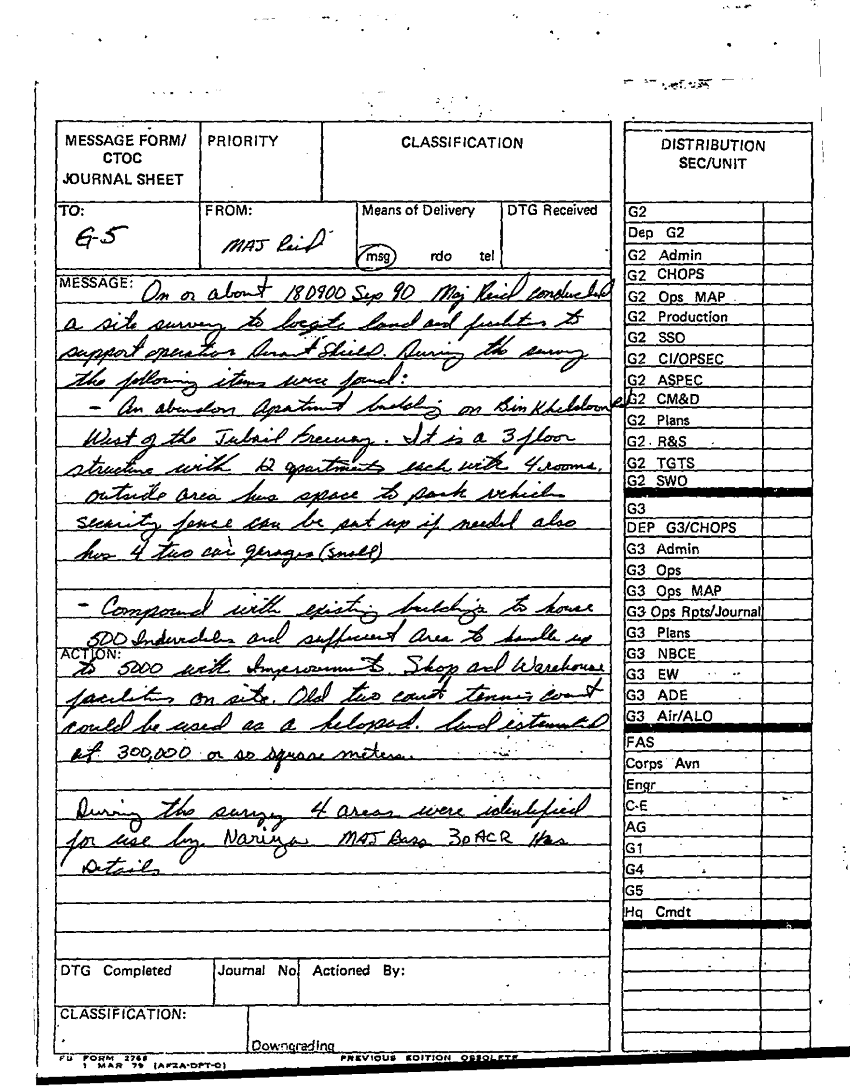 MESSAGE FORM/
CTOC
JOURNAL SHEET
PRIORITY
CLASSIFICATION
TO:
G-5
FROM:
MAJ Reid
Means of Delivery
msg rdo tel
DTG Received
MESSAGE: On or about 180900 Sep 90 Maj Reid conducted
a site survey to locate land and facilities to
support operation Desert Shield. During the survey
the following items were found:
- An abandon Apartment building on Bin Kheldoon
West of the Jubail Freeway. It is a 3 floor
structure with 12 apartments each with 4 rooms.
outside area has space to park vehicles
security fence can be put up if needed also
has 4 two car garages (small)
- Compound with existing buildings to house
500 Individules and sufficient area to handle up
ACTION:
to 5000 with Improvements. Shop and Warehouse
facilities on site. Old two court tennis court
could be used as a helopad. land estemated
at 300,000 or so square meters.
During the survey 4 areas were identified
for use by MAJ Bass 3D ACR Has
Details
DTG Completed
Journal No
Actioned By:
CLASSIFICATION:
Downgrading
FORM 2768
1 MAR 79 (AFZA-DPT-O)
PREVIOUS EDITION OBSOLETE
DISTRIBUTION
SEC/UNIT
G2
Dep G2
G2 Admin
G2 CHOPS
G2 Ops MAP
G2 Production
G2 SSO
G2 CI/OPSEC
G2 ASPEC
G2 CM&D
G2 Plans
G2 R&S
G2 TGTS
G2 SWO
G3
DEP G3/CHOPS
G3 Admin
G3 Ops
G3 Ops MAP
G3 Ops Rpts/Journal
G3 Plans
G3 NBCE
G3 EW
G3 ADE
G3 Air/ALO
FAS
Corps Avn
Engr
C-E
AG
G1
G4
G5
Hq Cmdt